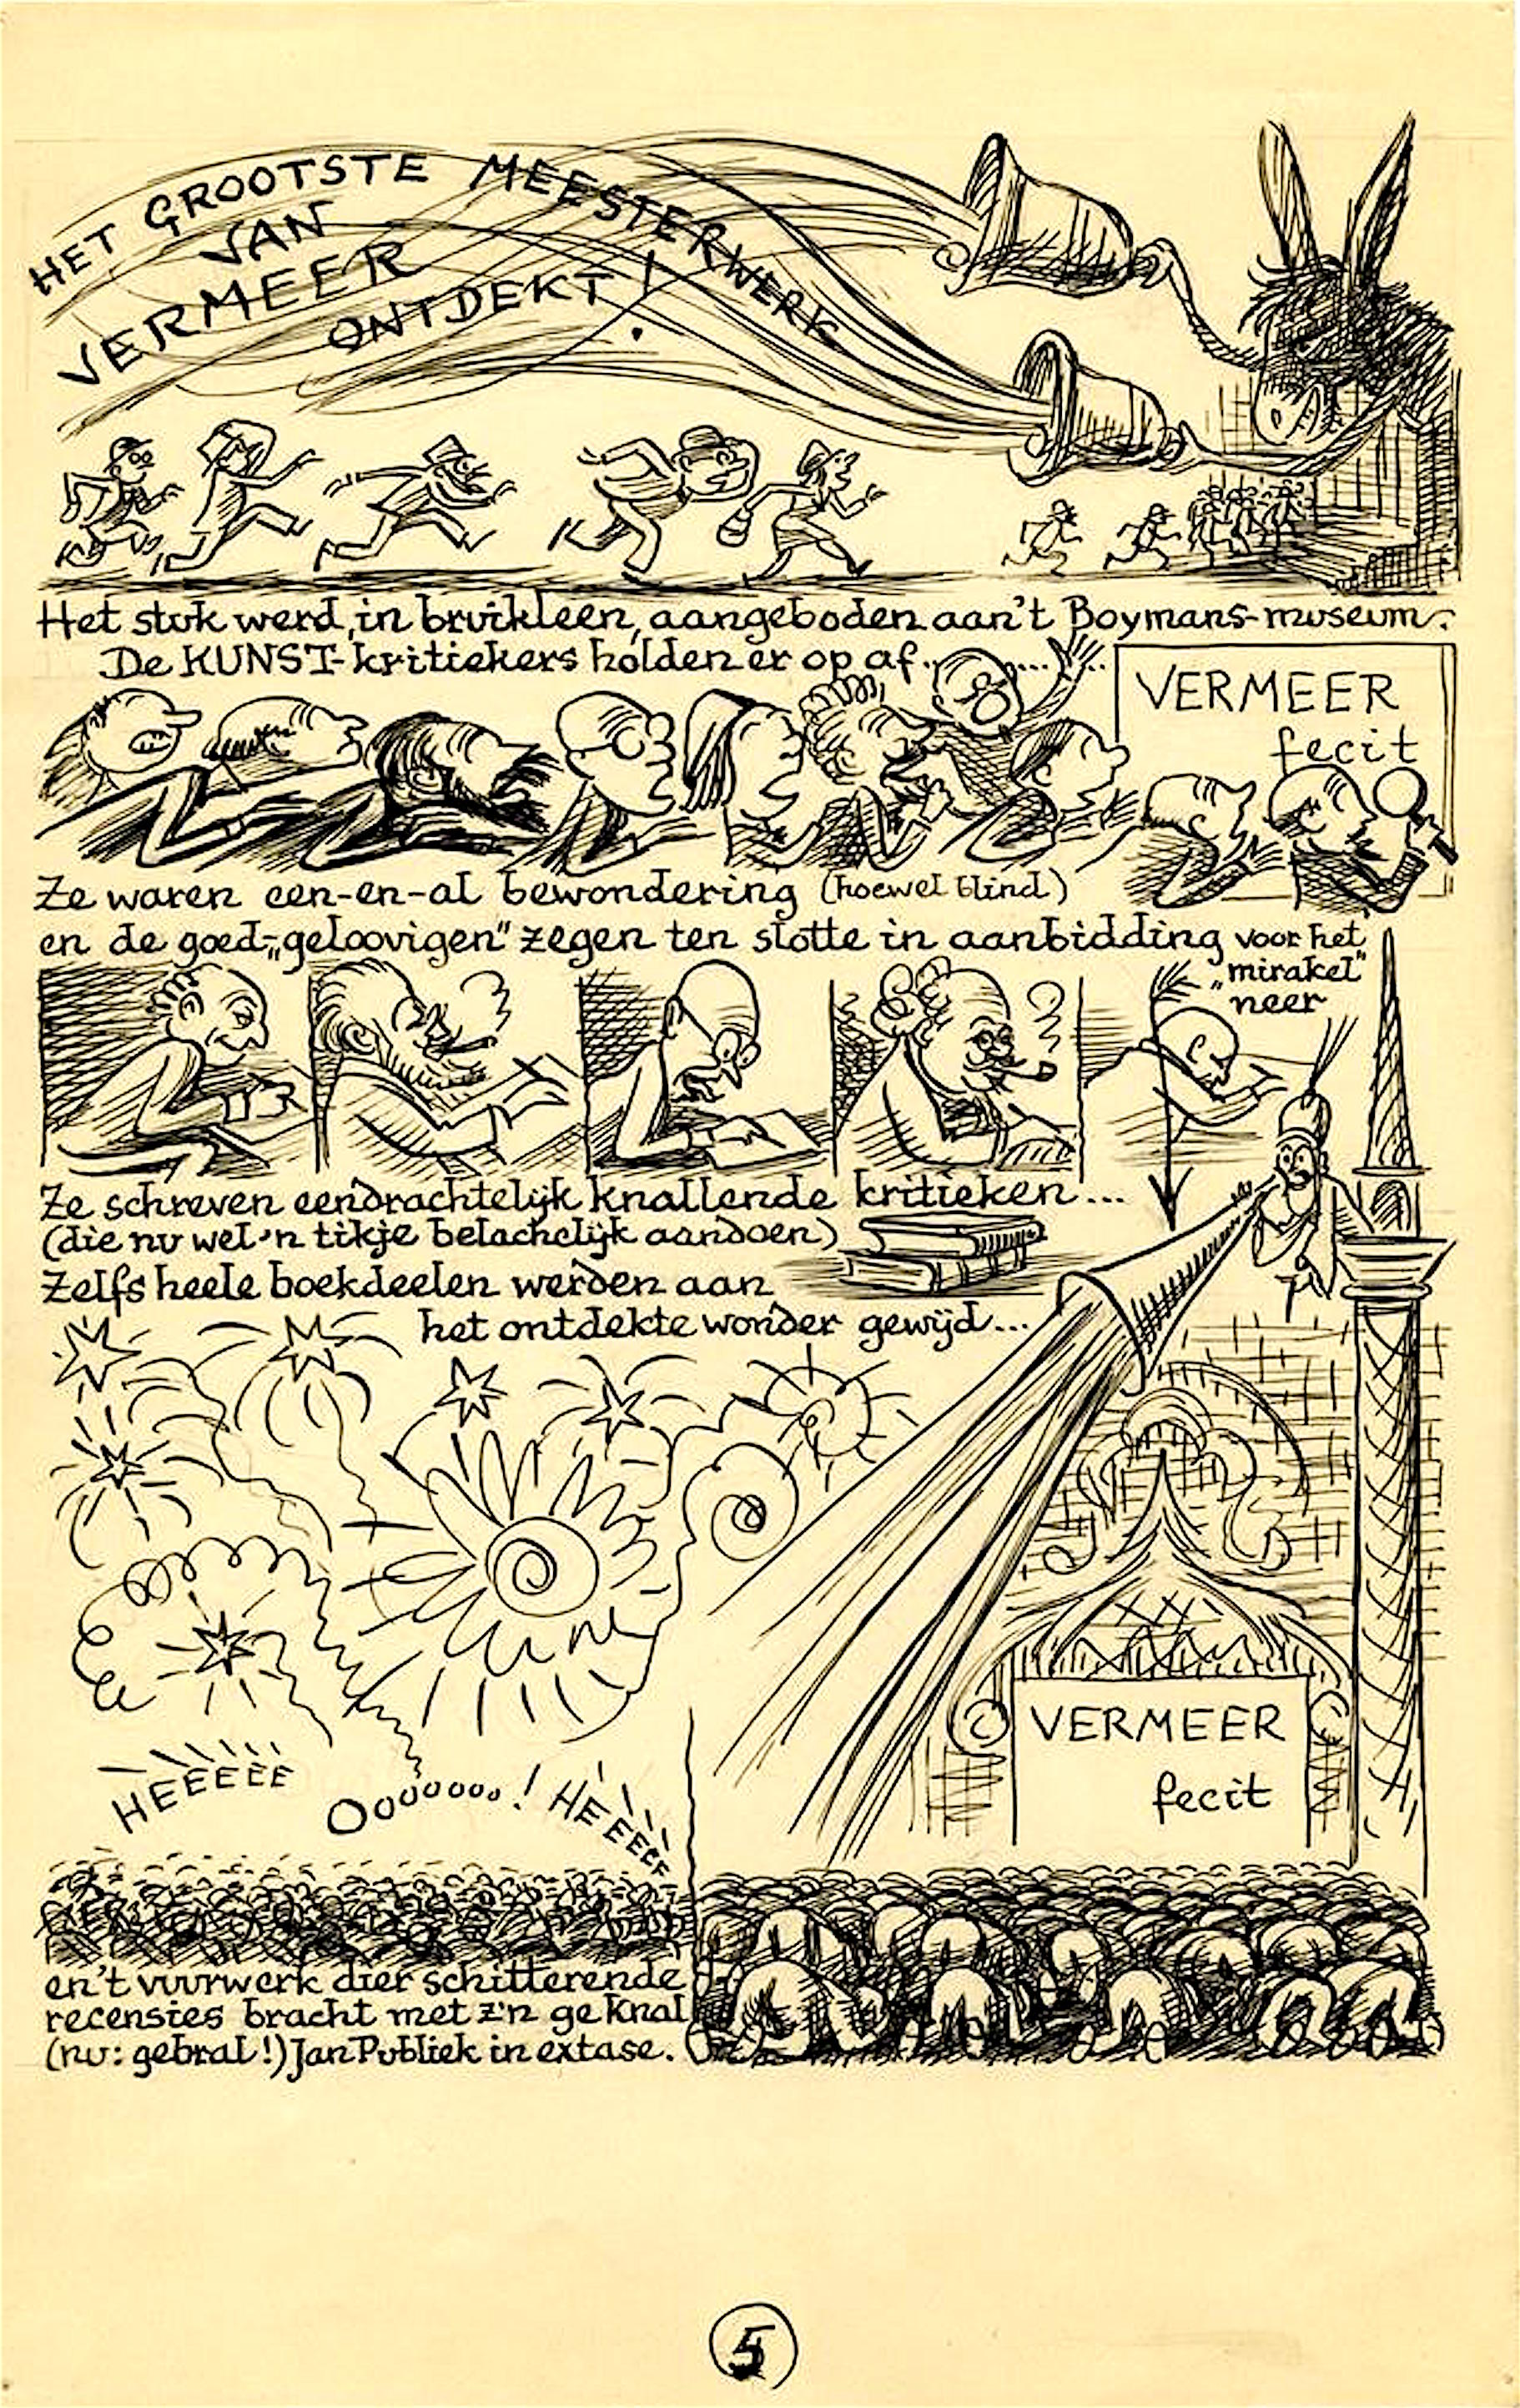 HET GROOTSTE MEESTERWERK
VAN
VERMEER
ONTDEKT!
Het stuk werd, in bruikleen, aangeboden aan't Boymans-museum.
De KUNST-kritiekers holden er op af.......
VERMEER
fecit
Ze waren een-en-al bewondering (hoewel blind)
en de goed-„geloovigen" zegen ten slotte in aanbidding voor het
„mirakel"
neer
Ze schreven eendrachtelijk knallende kritieken...
(die nu wel 'n tikje belachelijk aandoen)
Zelfs heele boekdeelen werden aan
het ontdekte wonder gewijd...
VERMEER
fecit
HEEEEE
Oooooooo! HEEEEE
en't vuurwerk dier schitterende
recensies bracht met z'n geknal
(nu: gebral!) Jan Publiek in extase.
5